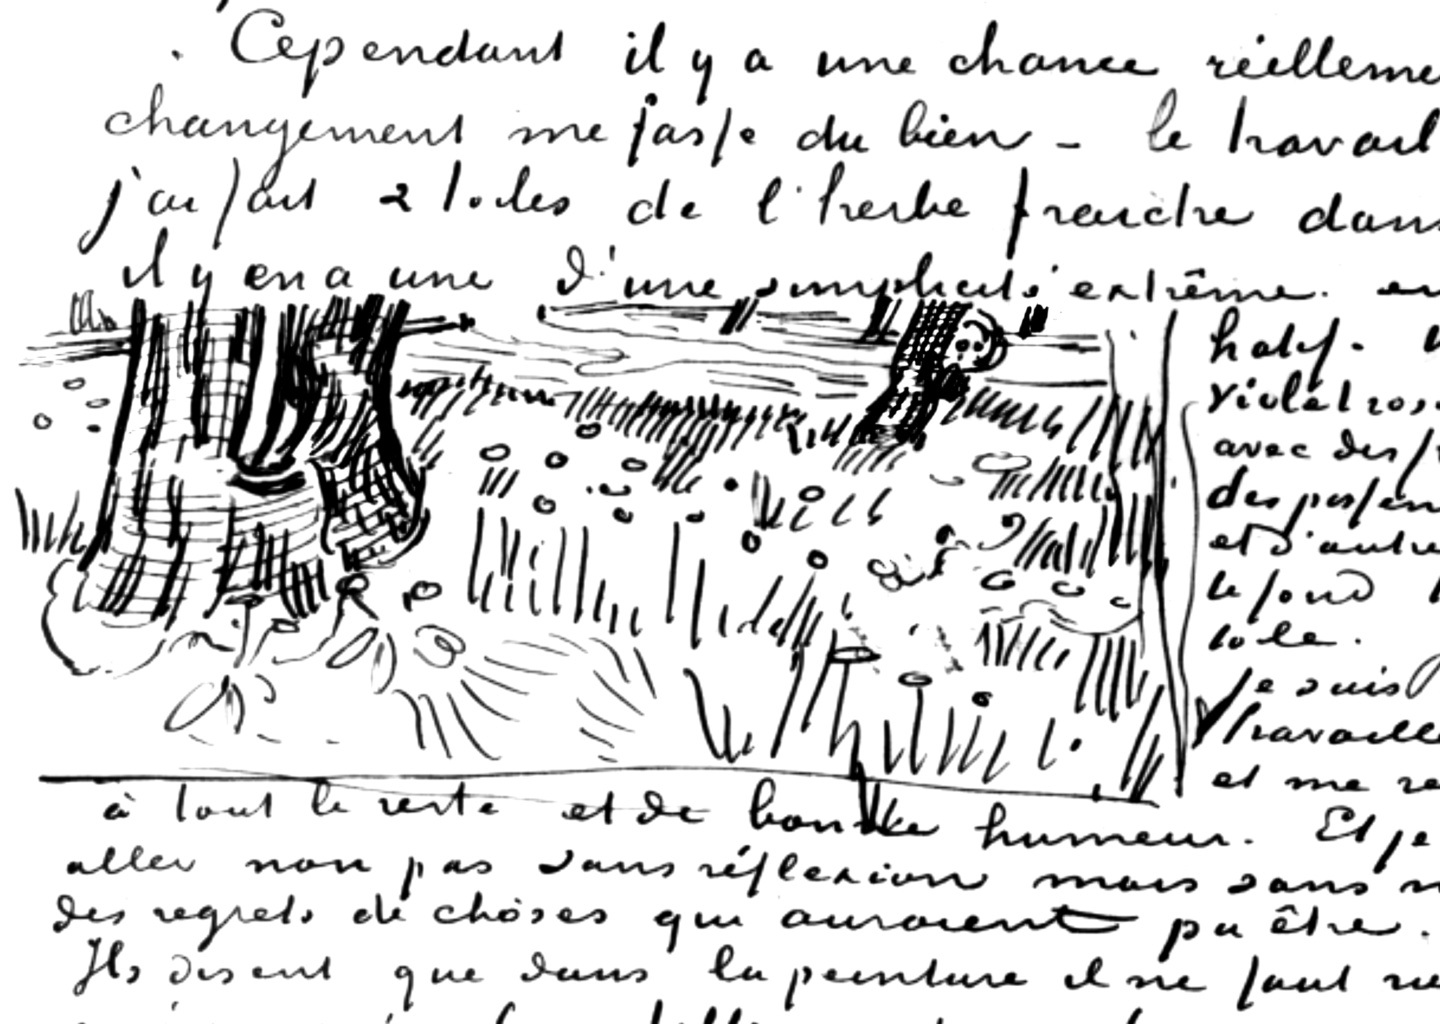 Cependant il y a une chance réelleme
changement me fasse du bien – le travail
j'ai fait 2 toiles de l'herbe fraiche dans
il y en a une d'une simplicité extrême. en
hatif.
violet rose
avec des
des
et d'autre
le fond
toile.
je suis
travaille
et me re
à tout le reste et de bonne humeur. Et je
aller non pas sans réflexion mais sans
des regrets de choses qui auraient pu être.
Ils disent que dans la peinture il ne faut